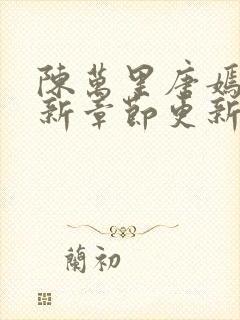 陳萬里唐嫣
新章節更新
蘭初